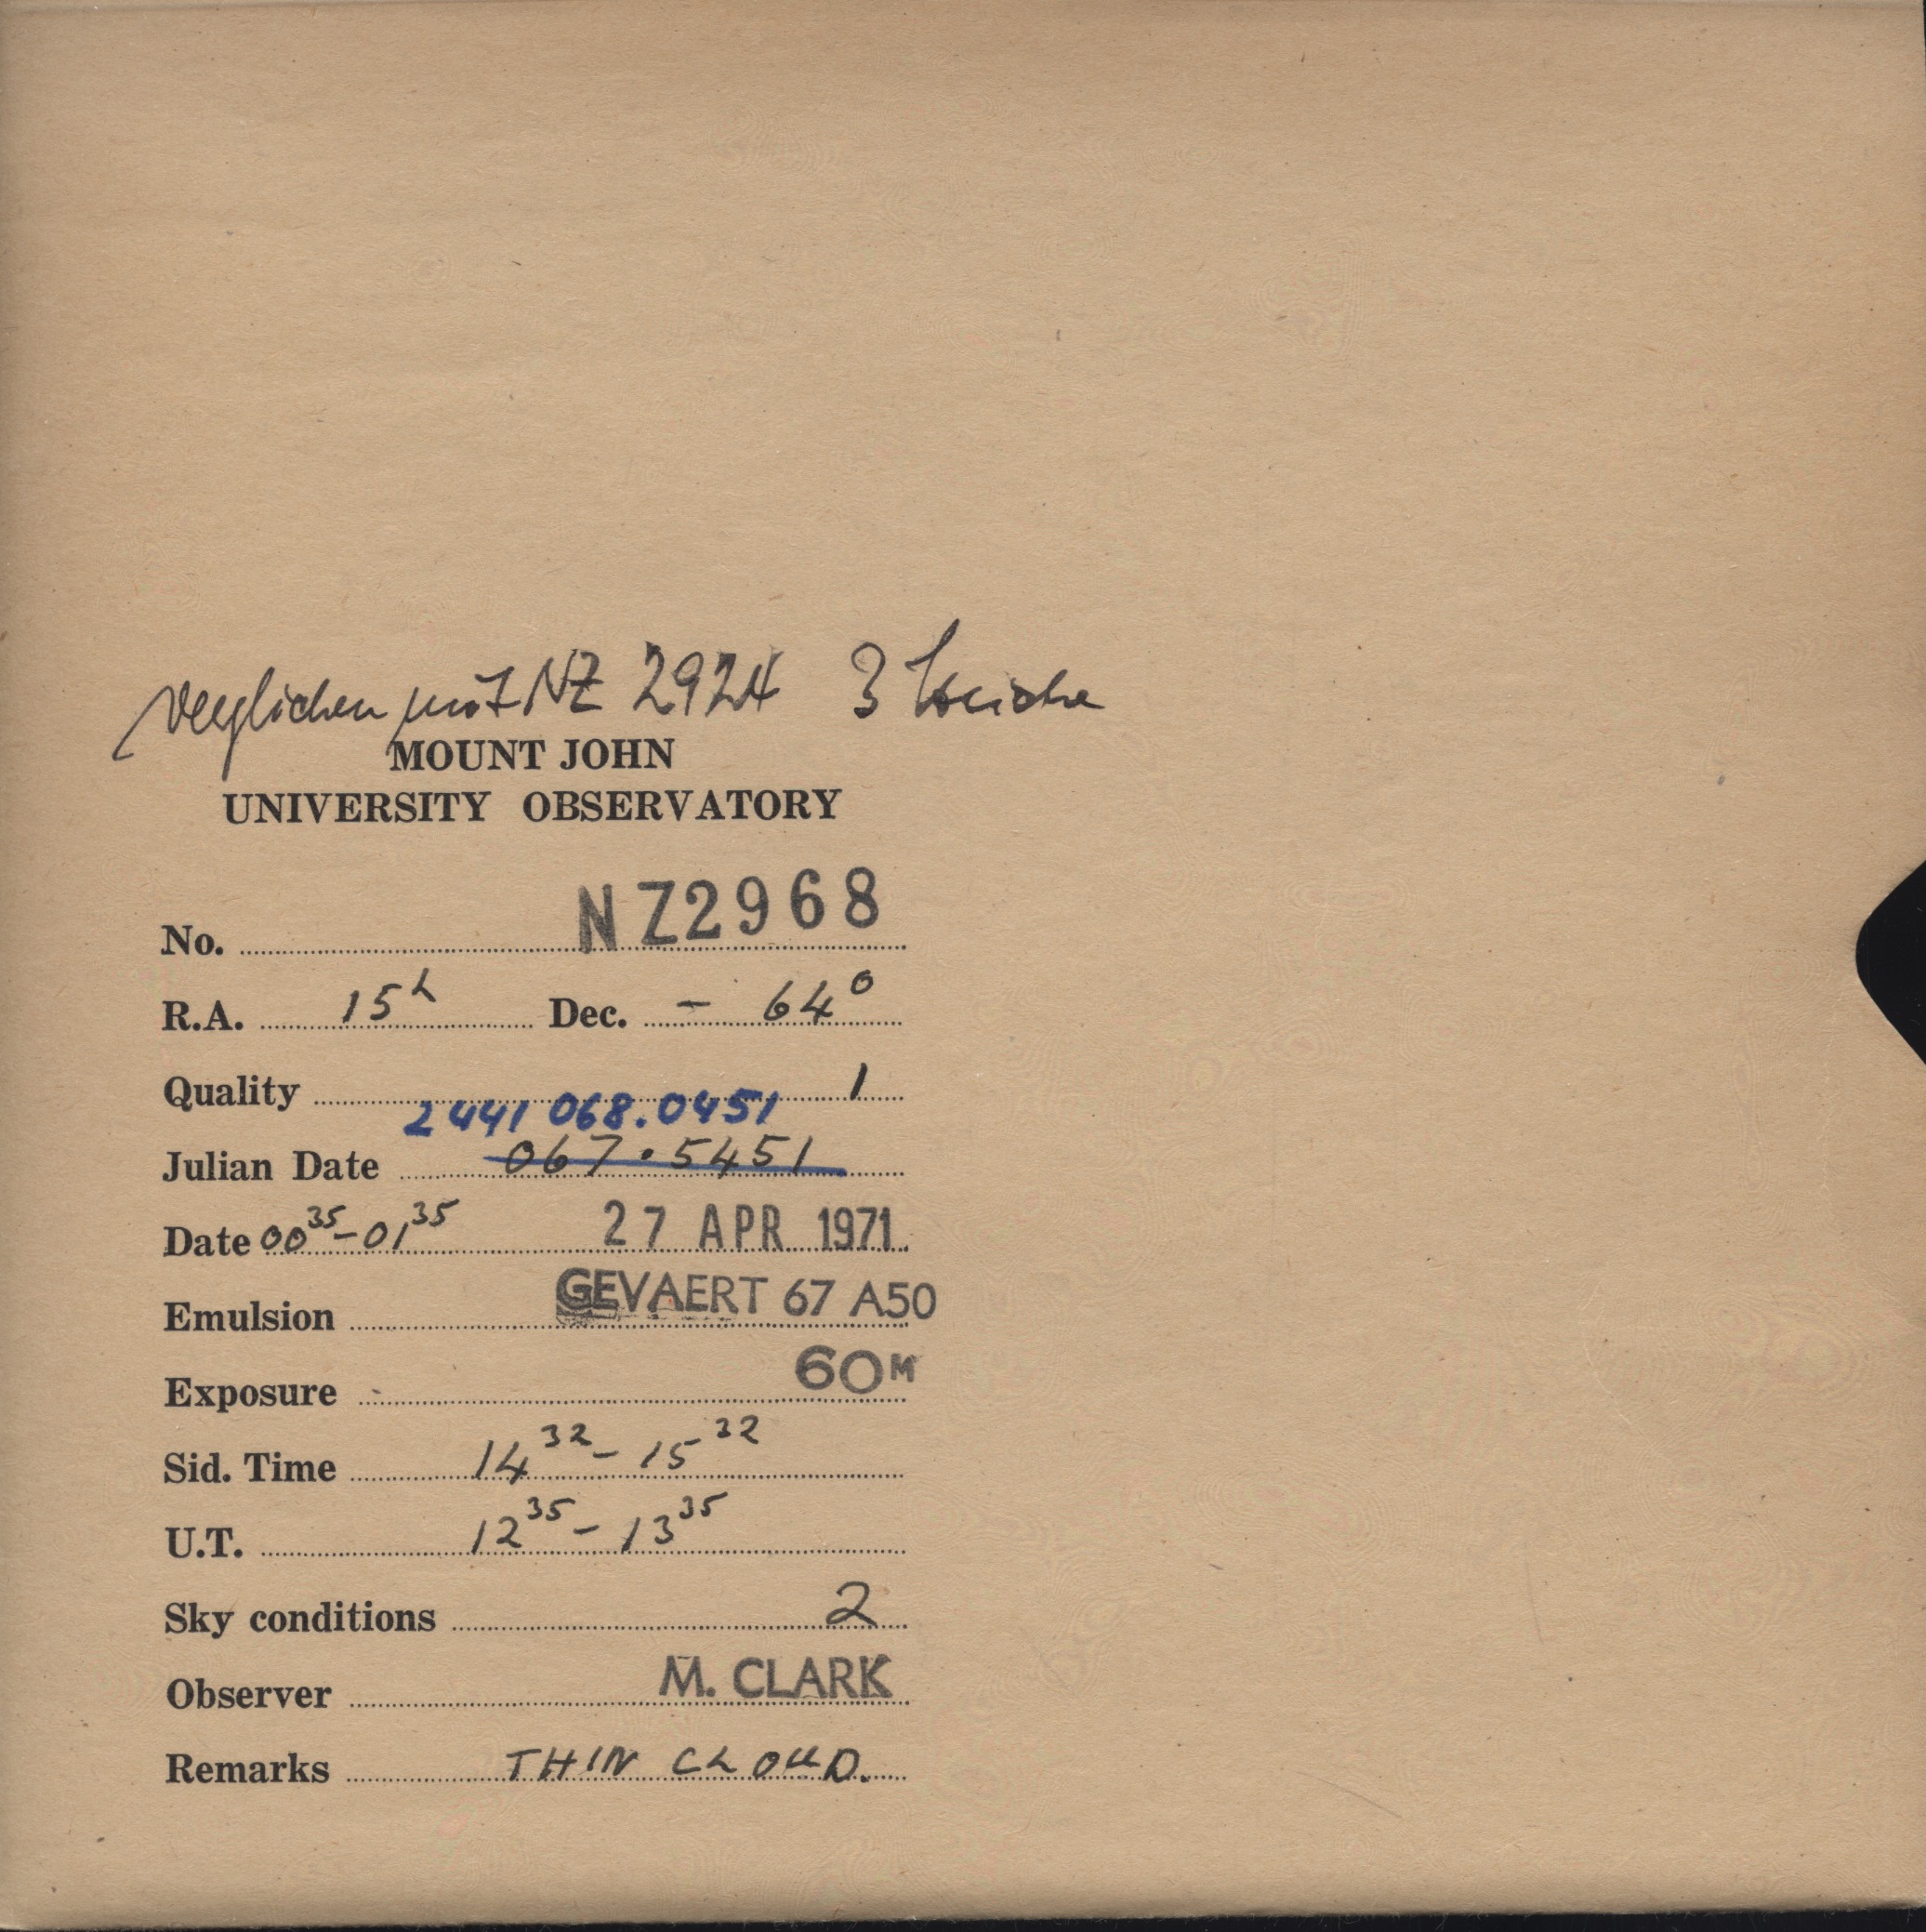 verglichen mit NZ 2924 3 Striche
MOUNT JOHN
UNIVERSITY OBSERVATORY
No. NZ2968
R.A. 15h Dec. - 64°
Quality 1
2441 068.0451
Julian Date 067.5451
Date 00 35 - 01 35 27 APR 1971
Emulsion GEVAERT 67 A50
Exposure 60M
Sid. Time 14 32 - 15 32
U.T. 12 35 - 13 35
Sky conditions 2
Observer M. CLARK
Remarks THIN CLOUD.